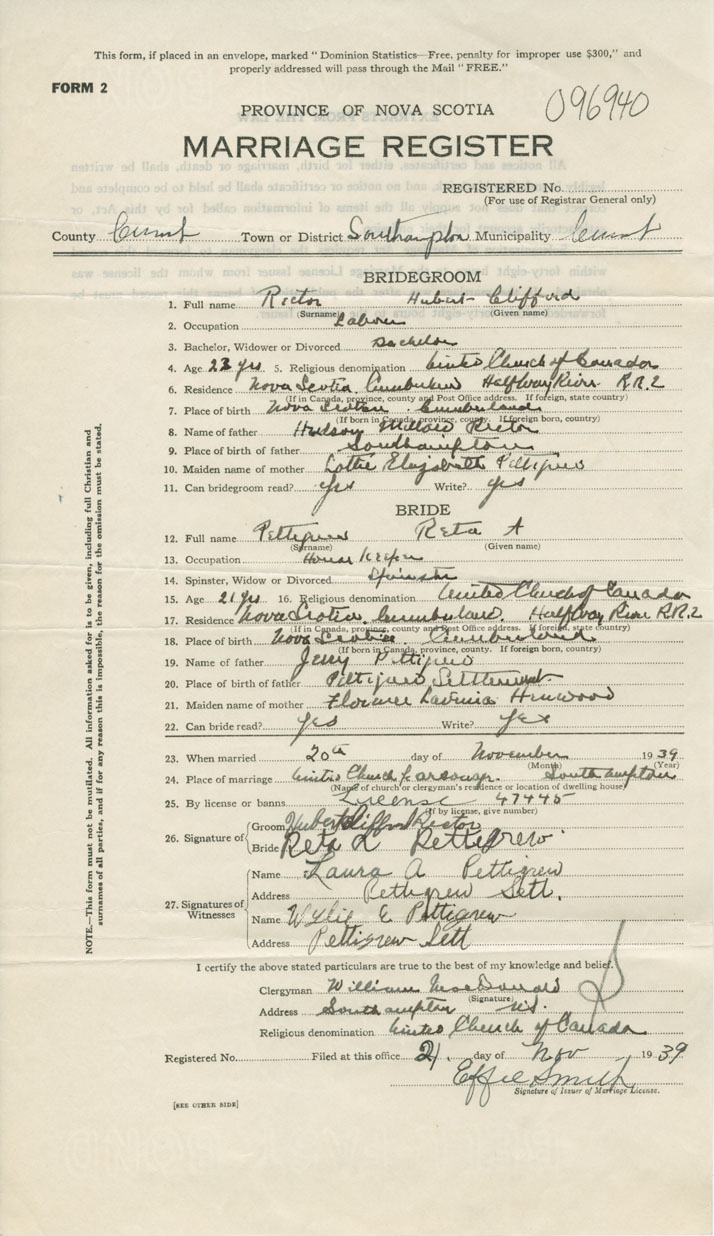 This form, if placed in an envelope, marked "Dominion Statistics—Free, penalty for improper use $300," and
properly addressed will pass through the Mail "FREE."
FORM 2
096940
PROVINCE OF NOVA SCOTIA
MARRIAGE REGISTER
REGISTERED No.
(For use of Registrar General only)
County Cumb Town or District Southampton Municipality Cumb
BRIDEGROOM
1. Full name Rector Hubert Clifford
(Surname) (Given name)
2. Occupation Labour
3. Bachelor, Widower or Divorced Bachelor
4. Age 23 yrs 5. Religious denomination United Church of Canada
6. Residence Nova Scotia Cumberland Halfway River R.R.2
(If in Canada, province, county and Post Office address. If foreign, state country)
7. Place of birth Nova Scotia Cumberland
(If born in Canada, province, county. If foreign born, country)
8. Name of father Hudson Rector
9. Place of birth of father Southampton
10. Maiden name of mother Lottie Elizabeth Pettigrew
11. Can bridegroom read? Yes Write? Yes
BRIDE
12. Full name Pettigrew Reta A
(Surname) (Given name)
13. Occupation House Keeper
14. Spinster, Widow or Divorced Spinster
15. Age 21 yrs 16. Religious denomination United Church of Canada
17. Residence Nova Scotia Cumberland. Halfway River R.R.2
(If in Canada, province, county and Post Office address. If foreign, state country)
18. Place of birth Nova Scotia. Cumberland
(If born in Canada, province, county. If foreign born, country)
19. Name of father Jerry Pettigrew
20. Place of birth of father Pettigrew Settlement
21. Maiden name of mother Florence Lavenia Henwood
22. Can bride read? Yes Write? Yes
23. When married 20th day of November 1939
(Month) (Year)
24. Place of marriage United Church Parsonage. Southampton
(Name of church or clergyman's residence or location of dwelling house)
25. By license or banns License 47445
(If by license, give number)
26. Signature of
Groom Hubert Clifford Rector
Bride Reta L Pettigrew
27. Signatures of Witnesses
Name Laura A Pettigrew
Address Pettigrew Sett.
Name Wylie E Pettigrew
Address Pettigrew Sett
I certify the above stated particulars are true to the best of my knowledge and belief.
Clergyman William MacDonald
(Signature)
Address Southampton NS
Religious denomination United Church of Canada
Registered No. Filed at this office 21. day of Nov 1939
Effie Smith
Signature of Issuer of Marriage License.
[SEE OTHER SIDE]
NOTE.—This form must not be mutilated. All information asked for is to be given, including full Christian and
surnames of all parties, and if for any reason this is impossible, the reason for the omission must be stated.